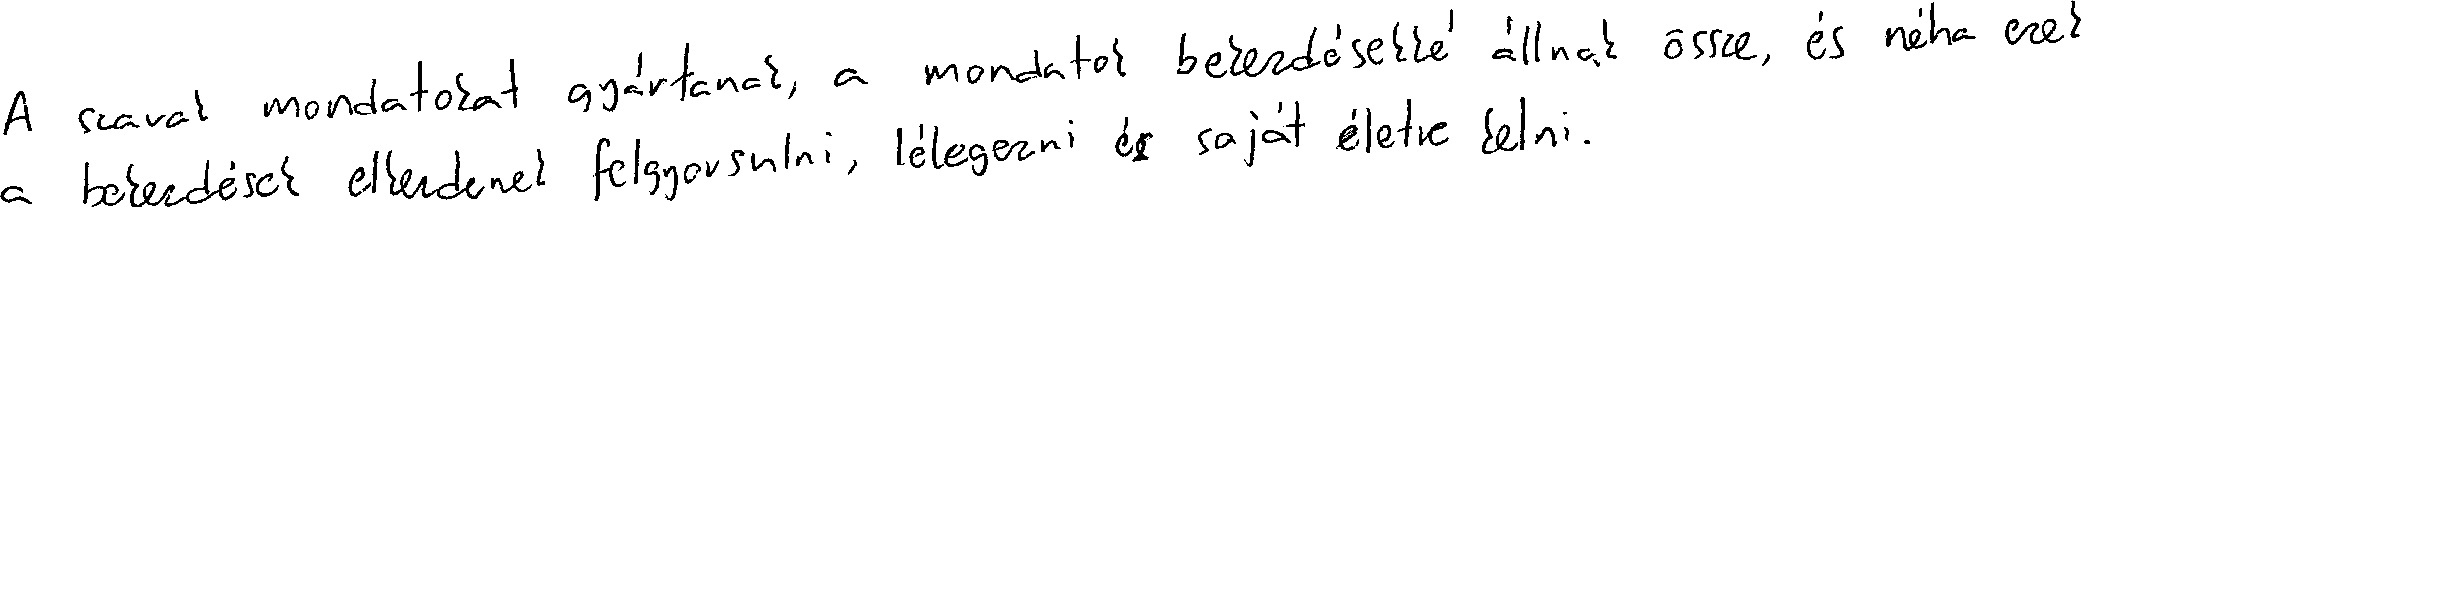 A szavak mondatokat gyártanak, a mondatok bekezdésekké állnak össze, és néha ezek
a bekezdések elkezdenek felgyorsulni, lélegezni és saját életre kelni.